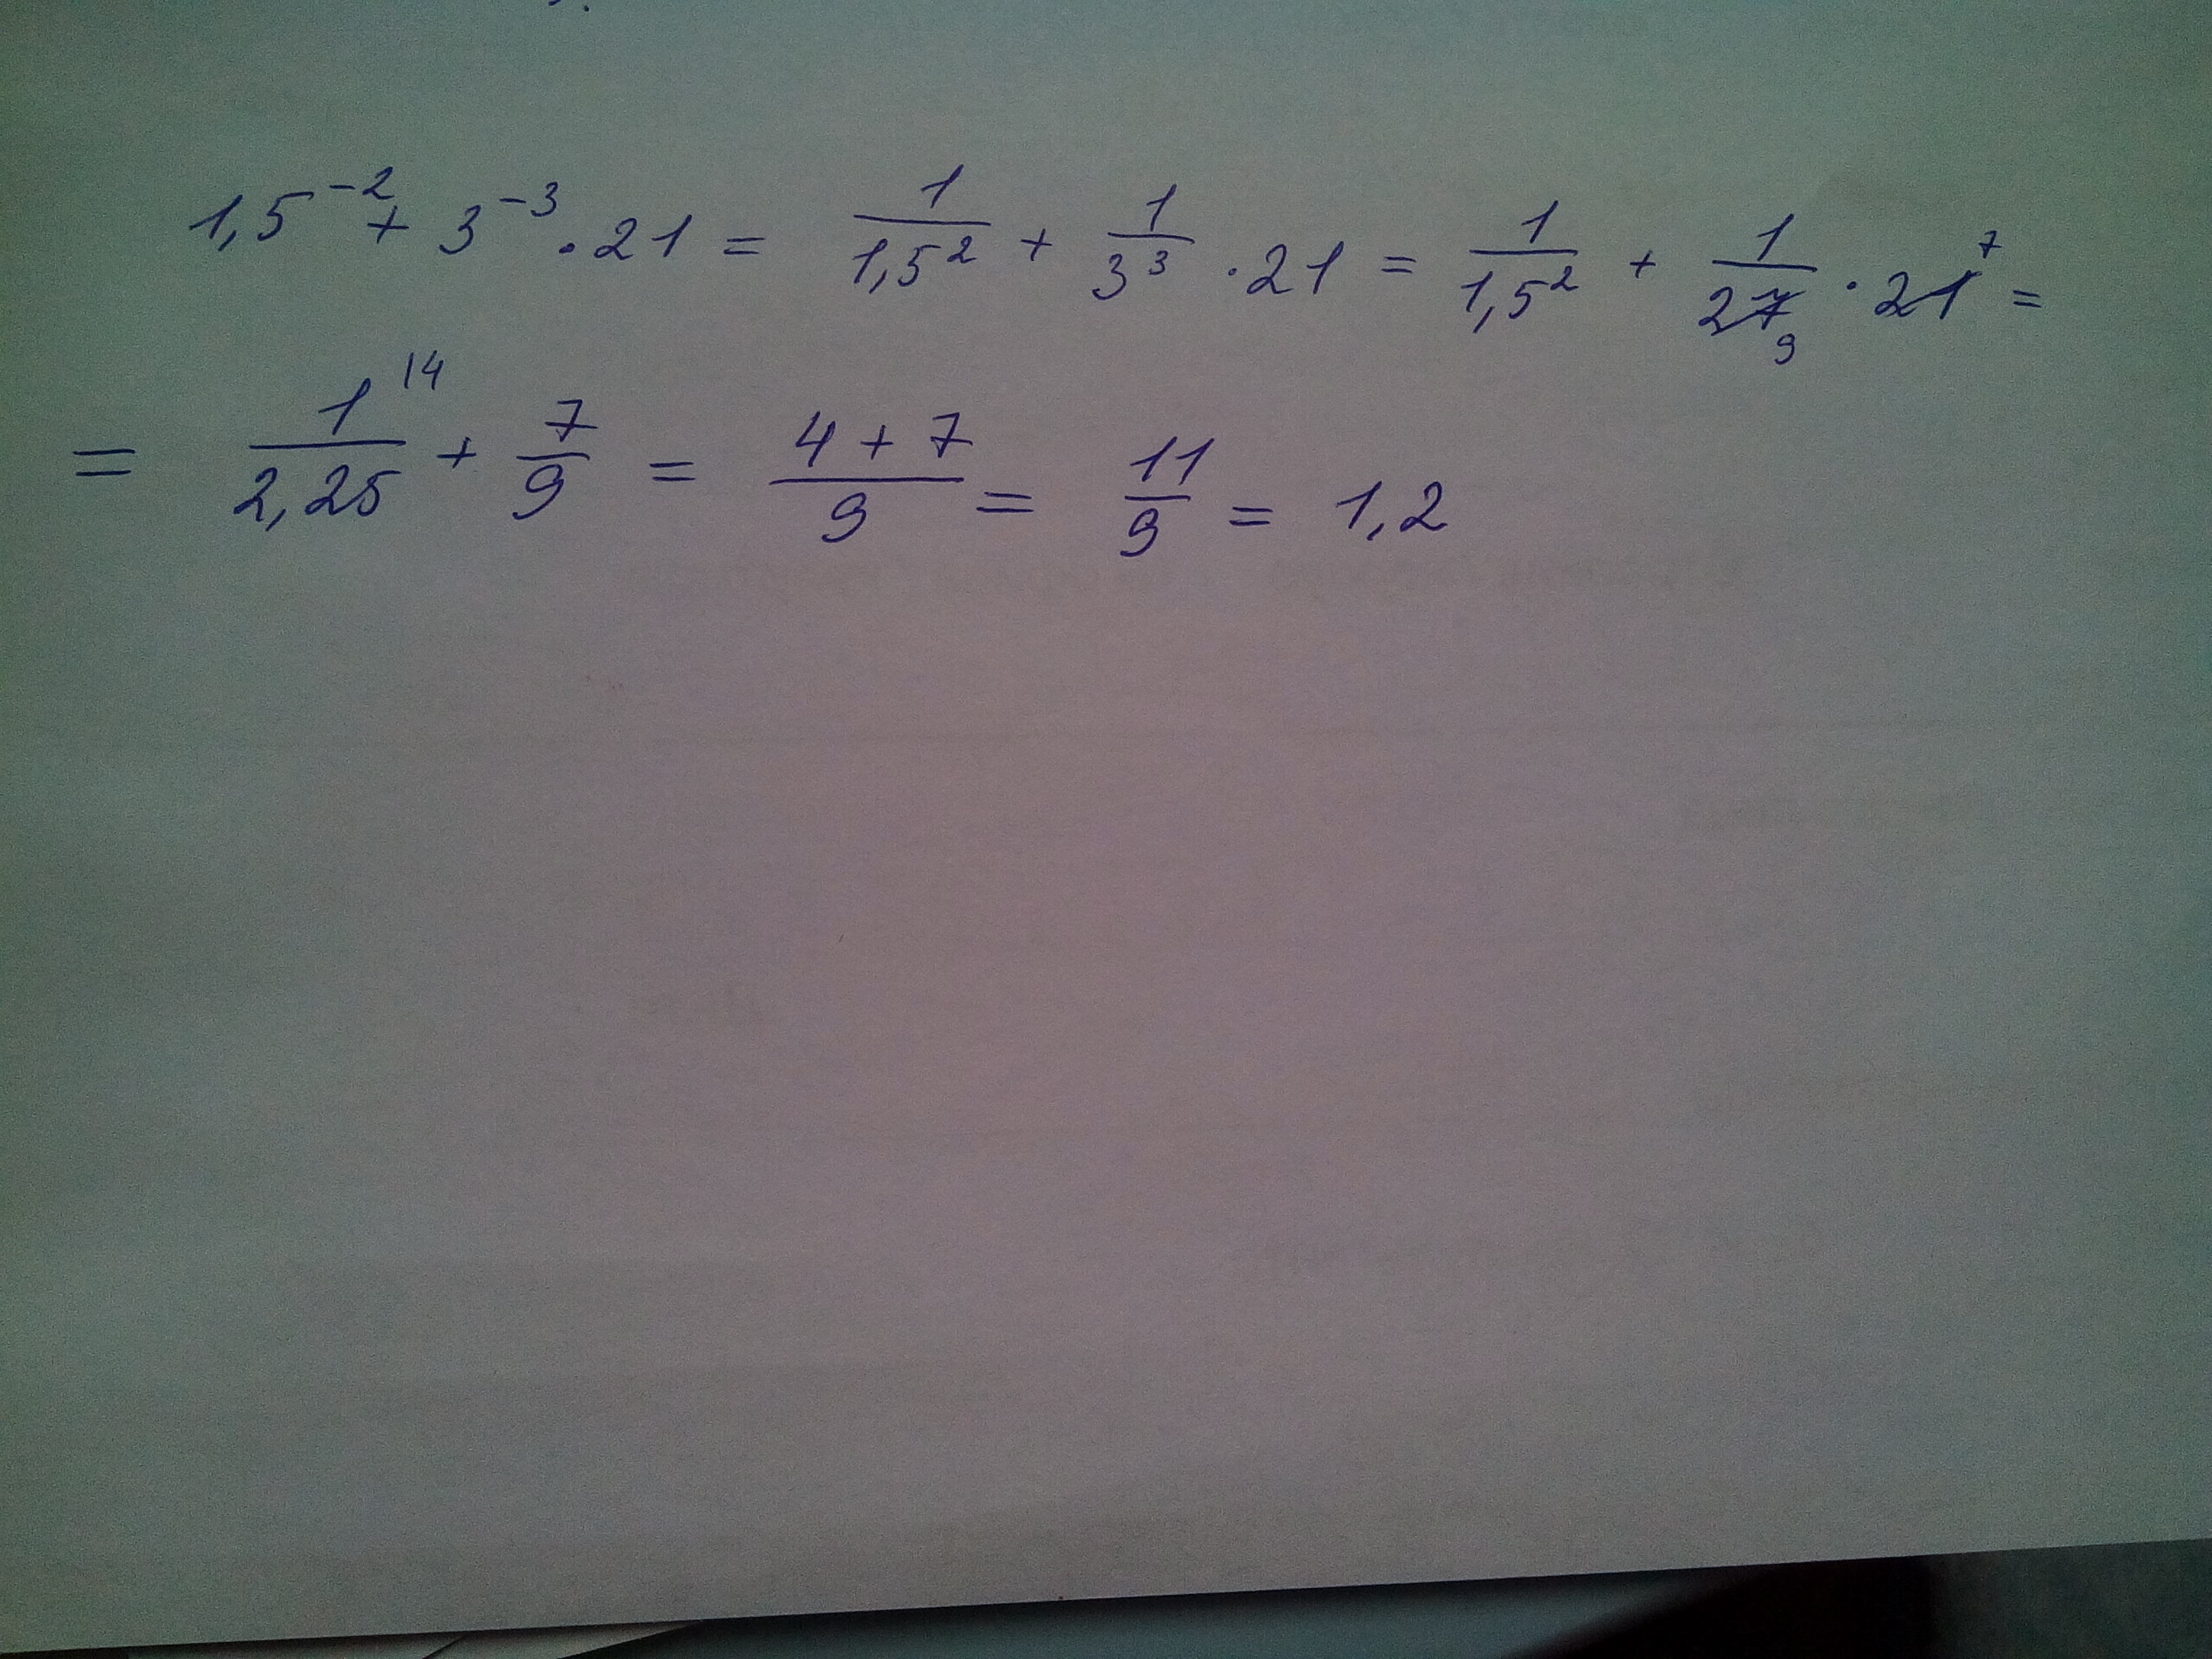 1,5⁻² + 3⁻³ · 21 = 1/1,5² + 1/3³ · 21 = 1/1,5² + 1/27 9 · 21 7 =
= 1/2,25 14 + 7/9 = 4 + 7/9 = 11/9 = 1,2